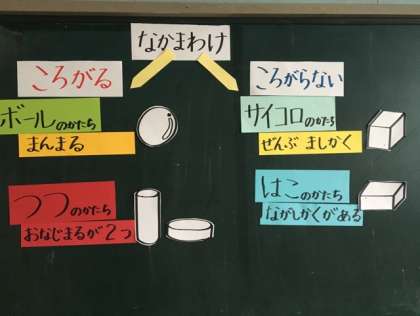 なかまわけ
ころがる
ボールのかたち
まんまる
つつのかたち
おなじまるが2つ
ころがらない
サイコロのかたち
ぜんぶ ましかく
はこのかたち
ながしかくがある